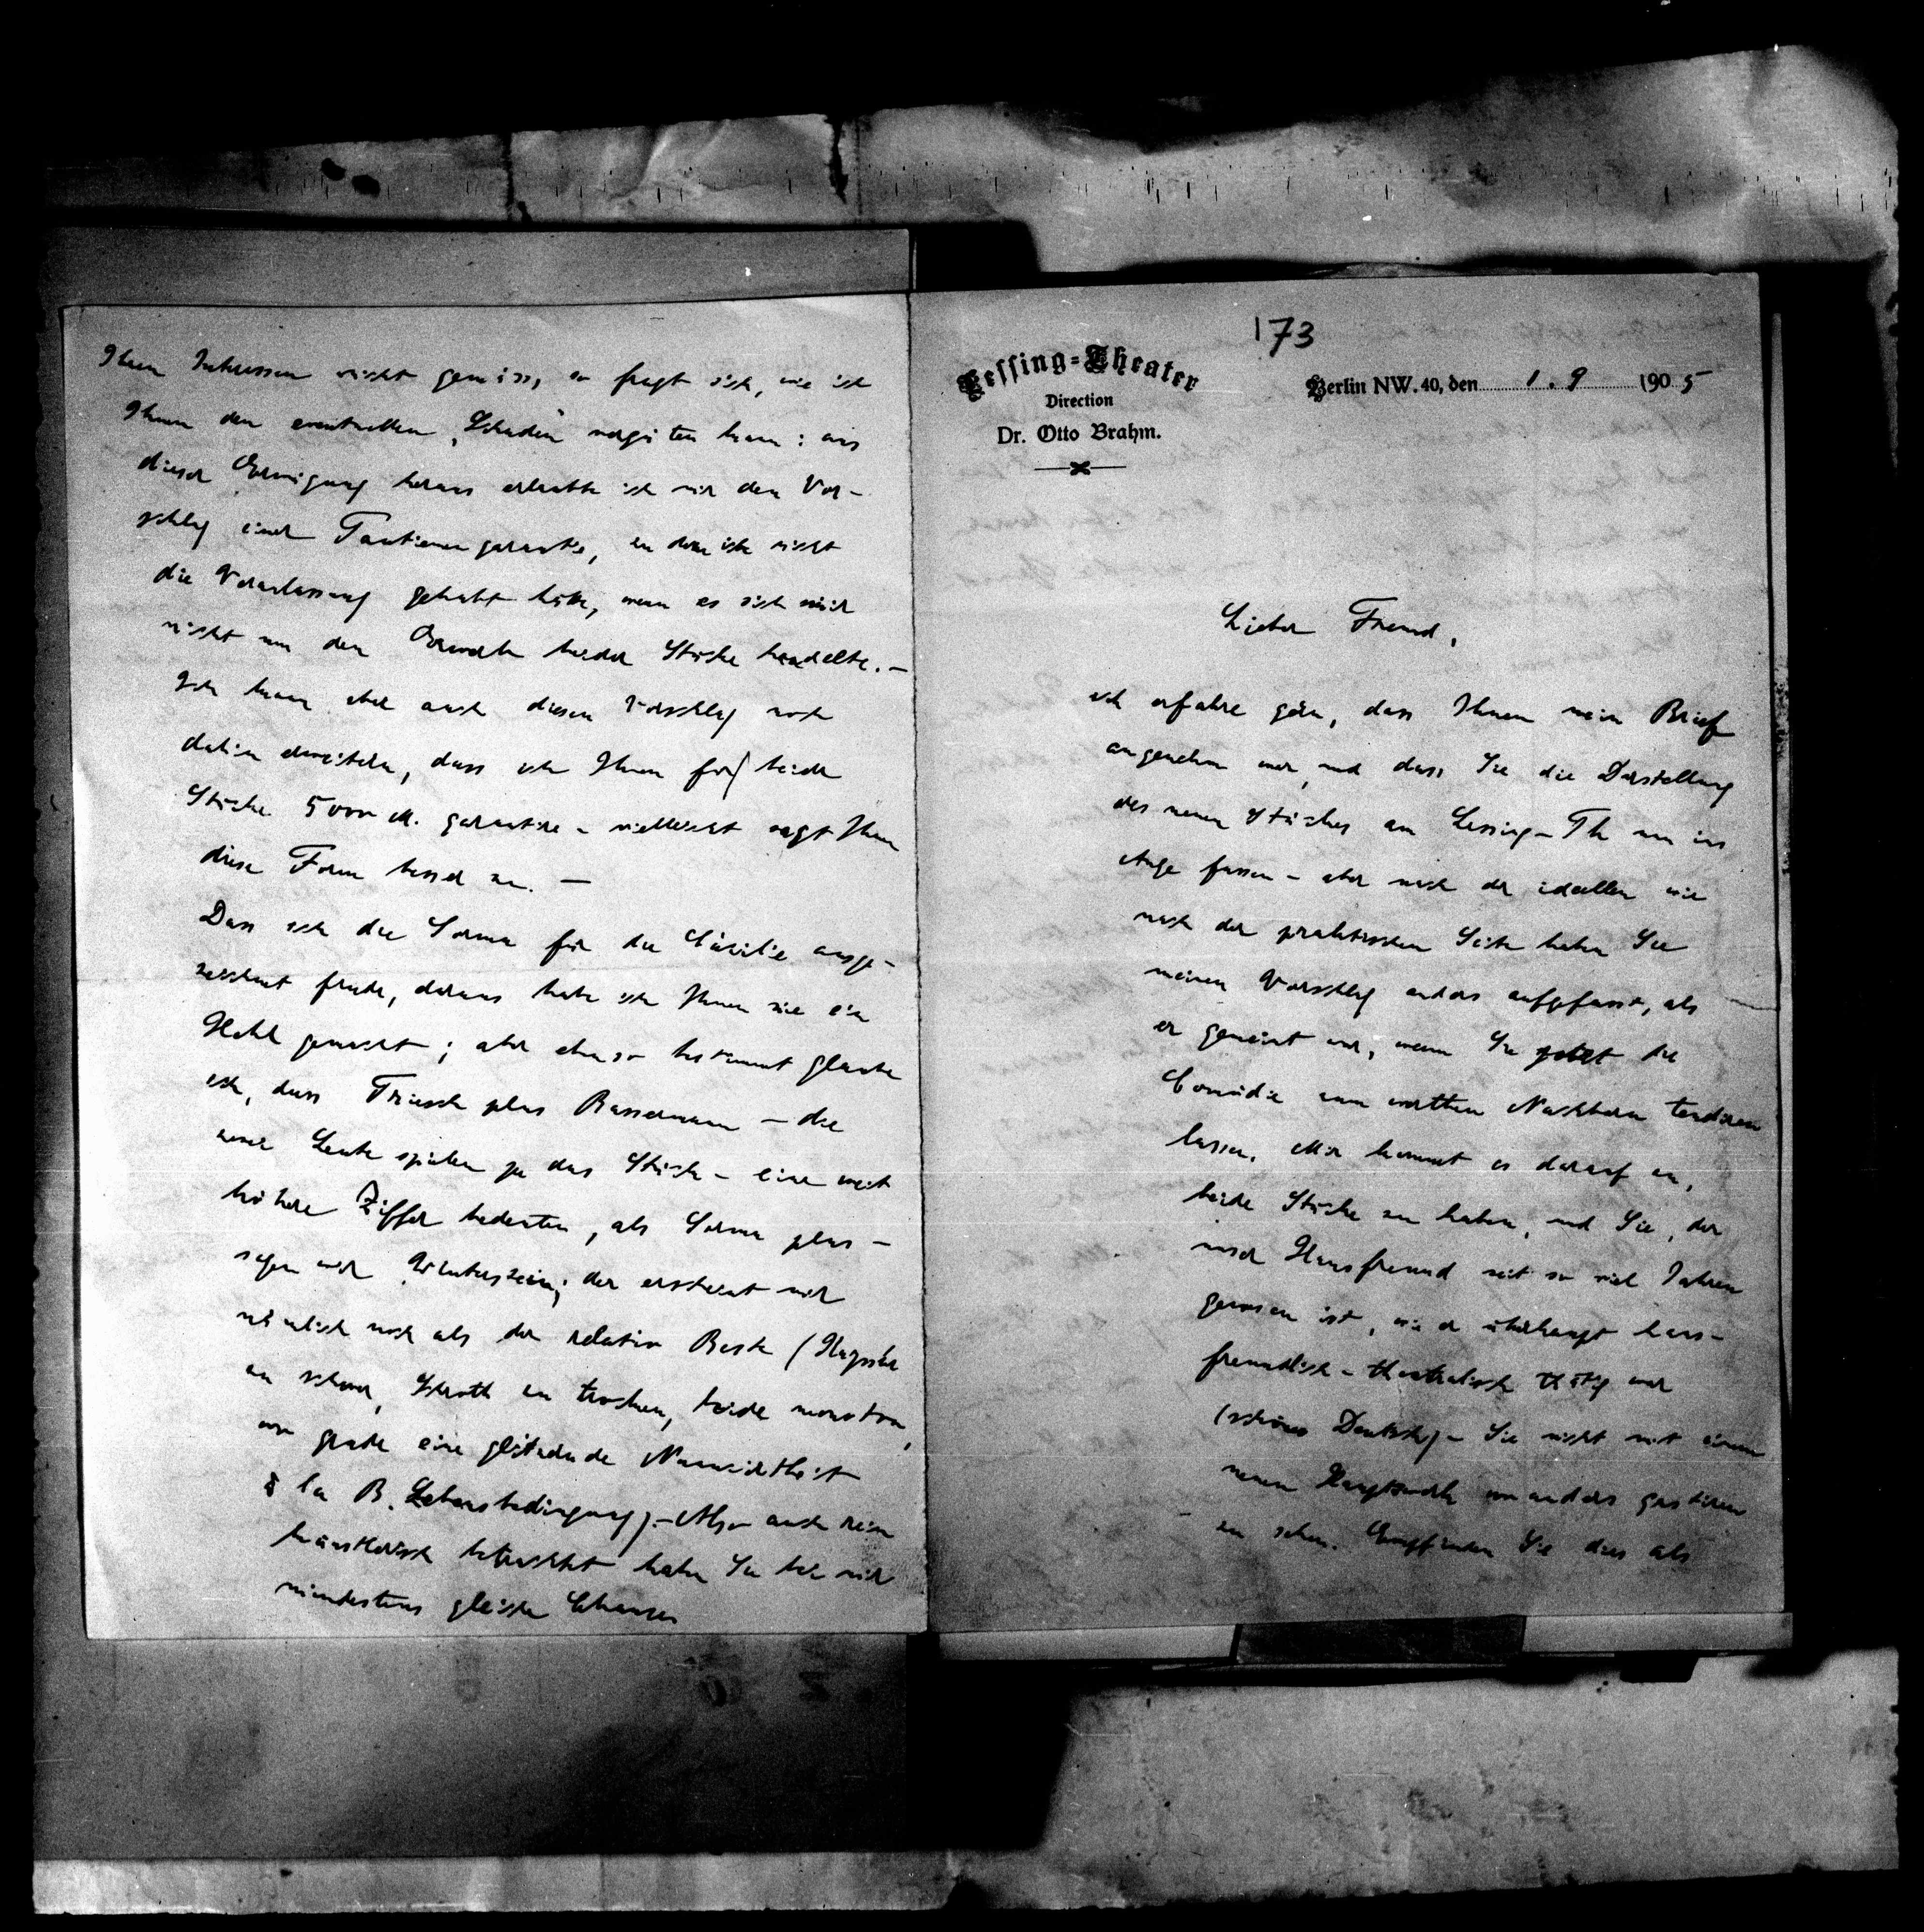 173
Lessing-Theater
Direction
Dr. Otto Brahm.
Berlin NW. 40, den 1. 9 1905
Lieber Freund,
ich erfahre gern, dass Ihnen mein Brief
angenehm war, und dass Sie die Darstellung
des neuen Stückes am Lessing-Th nun ins
Auge fassen – aber nach der ideellen wie
nach der praktischen Seite haben Sie
meinen Vorschlag anders aufgefasst, als
er gemeint war, wenn Sie jetzt die
Comödie zum werthen Nachbarn tendiren
lassen. Mir kommt es darauf an,
beide Stücke zu haben, und Sie, der
unser Hausfreund seit so viel Jahren
gewesen ist, wie er überhaupt haus-
freundlich-theatralisch thätig war
(schönes Deutsch) – Sie nicht mit einem
neuen Hauptwerk wo anders gastiren
zu sehen. Empfinden Sie dies als
Ihren Interessen nicht gemäss, so fragt sich, wie ich
Ihnen den eventuellen „Schaden" vergüten kann: aus
dieser Erwägung heraus erlaubte ich mir den Vor-
schlag einer Tantiemengarantie, zu dem ich nicht
die Veranlassung gehabt hätte, wenn es sich mir
nicht um den Erwerb beider Stücke handelte. –
Ich kann aber auch diesen Vorschlag noch
dahin erweitern, dass ich Ihnen für beide
Stücke 5000 M. garantire – vielleicht sagt Ihnen
diese Form besser zu. –
Dass ich die Sorma für die Cäcilie ausge-
zeichnet finde, daraus habe ich Ihnen nie ein
Hehl gemacht; aber ebenso bestimmt glaube
ich, dass Triesch plus Bassermann – die
zwei Leute spielen ja das Stück – eine weit
höhere Ziffer bedeuten, als Sorma plus –
sagen wir Winterstein; der erscheint mir
nämlich noch als der relativ Beste (Kayssler
zu schwer, zu trocken, beide monoton,
wo grade eine glitzernde Nuancirtheit
à la B. Lebensbedingung). – Also auch rein
künstlerisch betrachtet haben Sie bei mir
mindestens gleiche Chancen